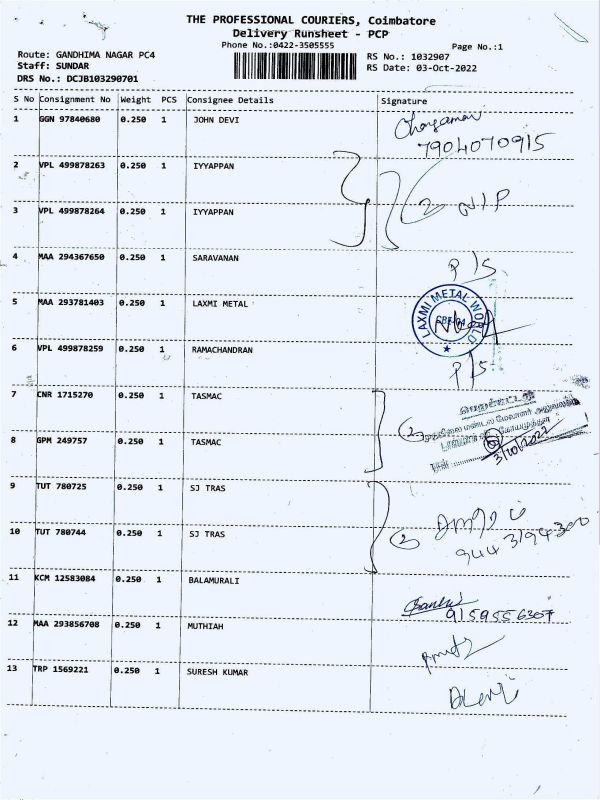 THE PROFESSIONAL COURIERS, Coimbatore
Delivery Runsheet - PCP
Phone No.:0422-3505555
Page No.:1
Route: GANDHIMA NAGAR PC4
Staff: SUNDAR
DRS No.: DCJB103290701
RS No.: 1032907
RS Date: 03-Oct-2022
S No Consignment No Weight PCS Consignee Details Signature
1 GGN 97840680 0.250 1 JOHN DEVI
7904070915
2 VPL 499878263 0.250 1 IYYAPPAN
2 N.I.P
3 VPL 499878264 0.250 1 IYYAPPAN
4 MAA 294367650 0.250 1 SARAVANAN P/S
5 MAA 293781403 0.250 1 LAXMI METAL
LAXMI METAL WORLD
CBE-04
6 VPL 499878259 0.250 1 RAMACHANDRAN P/S
7 CNR 1715270 0.250 1 TASMAC
பெறப்பட்டது
2 முதுநிலை மண்டல மேலாளர் அலுவலகம்
8 GPM 249757 0.250 1 TASMAC
3/10/2022
9 TUT 780725 0.250 1 SJ TRAS
2
9443194300
10 TUT 780744 0.250 1 SJ TRAS
11 KCM 12583084 0.250 1 BALAMURALI
9159556307
12 MAA 293856708 0.250 1 MUTHIAH
13 TRP 1569221 0.250 1 SURESH KUMAR